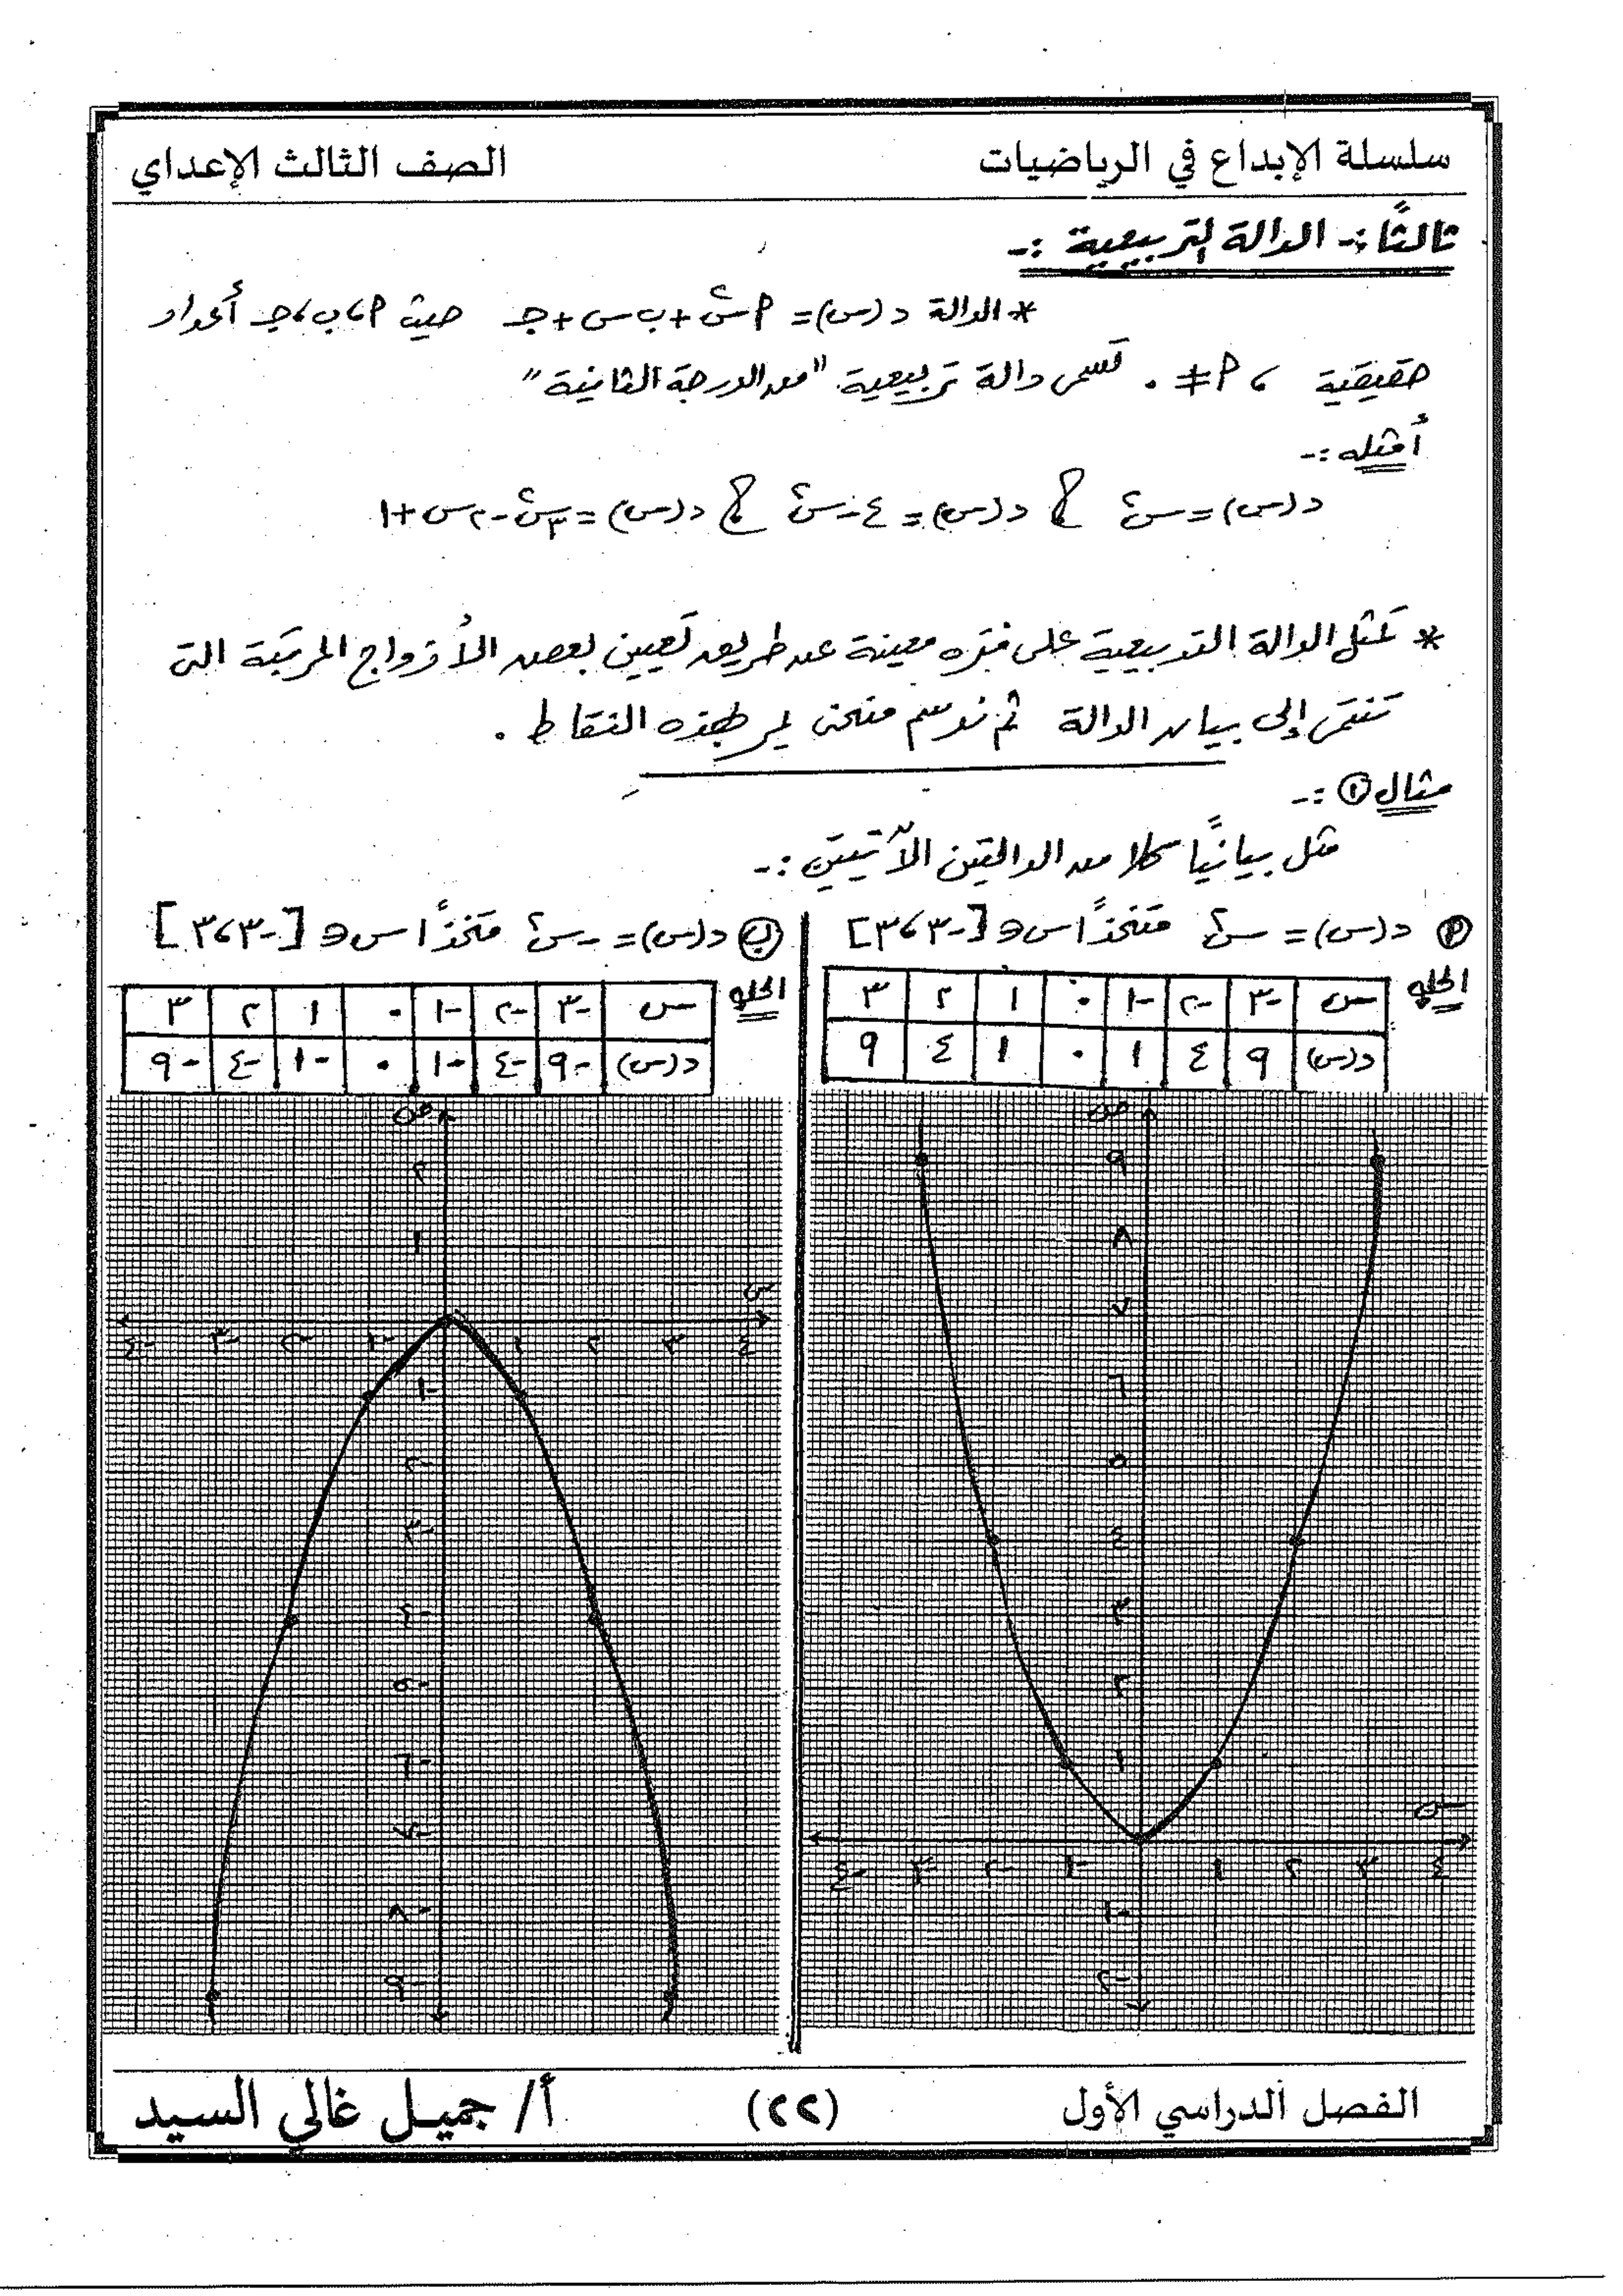 سلسلة الإبداع في الرياضيات
الصف الثالث الإعداي
ثالثًا :- الدالة التربيعية :-
* الدالة د(س) = ٢س² + ب س + جـ حيث ٢، ب، جـ أعداد
حقيقية ، ٢ ≠ ٠ تسمى دالة تربيعية "من الدرجة الثانية"
أمثله :-
د(س) = س² ، د(س) = ٤ - س² ، د(س) = ٣س² - ٢س + ١
* تمثل الدالة التربيعية على فتره معينة عن طريق تعيين بعض الأزواج المرتبة التى
تنتمى إلى بيان الدالة ثم نرسم منحنى يمر بهذه النقاط .
مثال ① :-
مثل بيانيًا كلا من الدالتين الآتيتين :-
أ د(س) = س² متخذًا س ∈ [-٣ ، ٣]
الحل
س -٣ -٢ -١ ٠ ١ ٢ ٣
د(س) ٩ ٤ ١ ٠ ١ ٤ ٩
ص
٩
٨
٧
٦
٥
٤
٣
٢
١
س
-٤ -٣ -٢ -١ ١ ٢ ٣ ٤
-١
-٢
ب د(س) = -س² متخذًا س ∈ [-٣ ، ٣]
الحل
س -٣ -٢ -١ ٠ ١ ٢ ٣
د(س) -٩ -٤ -١ ٠ -١ -٤ -٩
ص
٢
١
س
-٤ -٣ -٢ -١ ١ ٢ ٣ ٤
-١
-٢
-٣
-٤
-٥
-٦
-٧
-٨
-٩
الفصل الدراسي الأول
(٢٢)
أ/ جميل غالي السيد